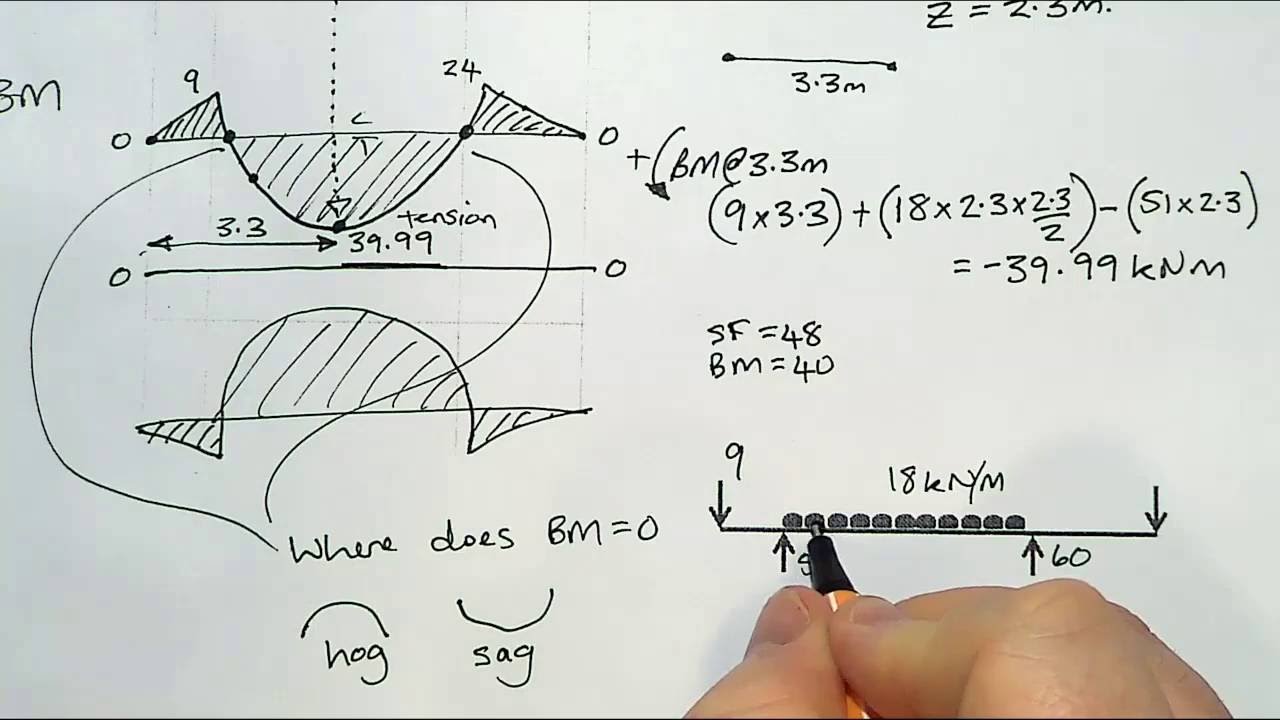 Z = 2.3m.
BM
9
24
3.3m
0
0
+
BM@3.3m
(9×3.3) + (18×2.3×2.3/2) − (51×2.3)
= −39.99 kNm
tension
3.3
39.99
0
0
SF = 48
BM = 40
9
18kN/M
60
Where does BM=0
hog
sag